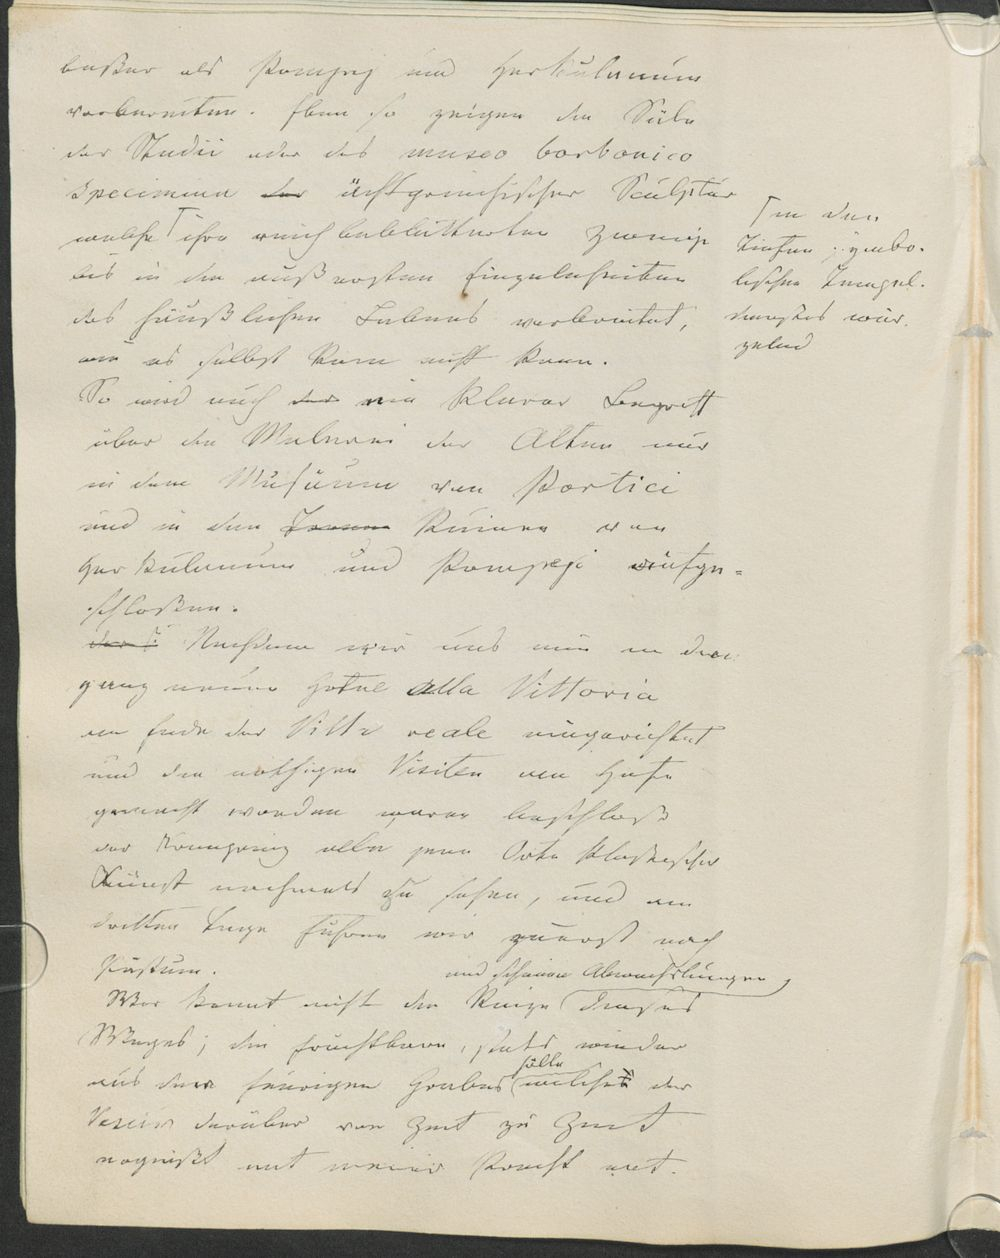 beßer als Pompej und Herkulanum
vorbereiten. Eben so zeigen die Säle
der Studii oder des museo borbonico
Specimina der ächtgriechischer Sculptur
welche ⌈ ihre reich beblätterten Zweige
bis in die äußersten Einzelnheiten
des häußlichen Lebens verbreitet,
wie es selbst Rom nicht kann.
⌈ in den
Tiefen symbo-
lischen Tempel-
dienstes wur-
zelnd
So wird auch der ein klarer Begriff
über die Malerei der Alten nur
in dem Musäum von Portici
und in den Ruinen von
Herkulanum und Pompeji aufge=
schloßen.
Nachdem wir uns nun in dem
ganz neuen Hotel alla Vittoria
am Ende der Villa reale eingerichtet
und die nöthigen Visiten am Hofe
gemacht worden waren beschloß
der Kronprinz alle jene Orte klassischer
Kunst nochmals zu sehen, und am
dritten Tage fuhren wir zuerst nach
Pästum.
und schönen Abwechslungen
Wer kennt nicht die Reize dieses
Weges; die fruchtbare, stets wieder
aus dem feurigen Grabes welches der
Vesuv darüber von Zeit zu Zeit
ergießt mit neuer Kraft